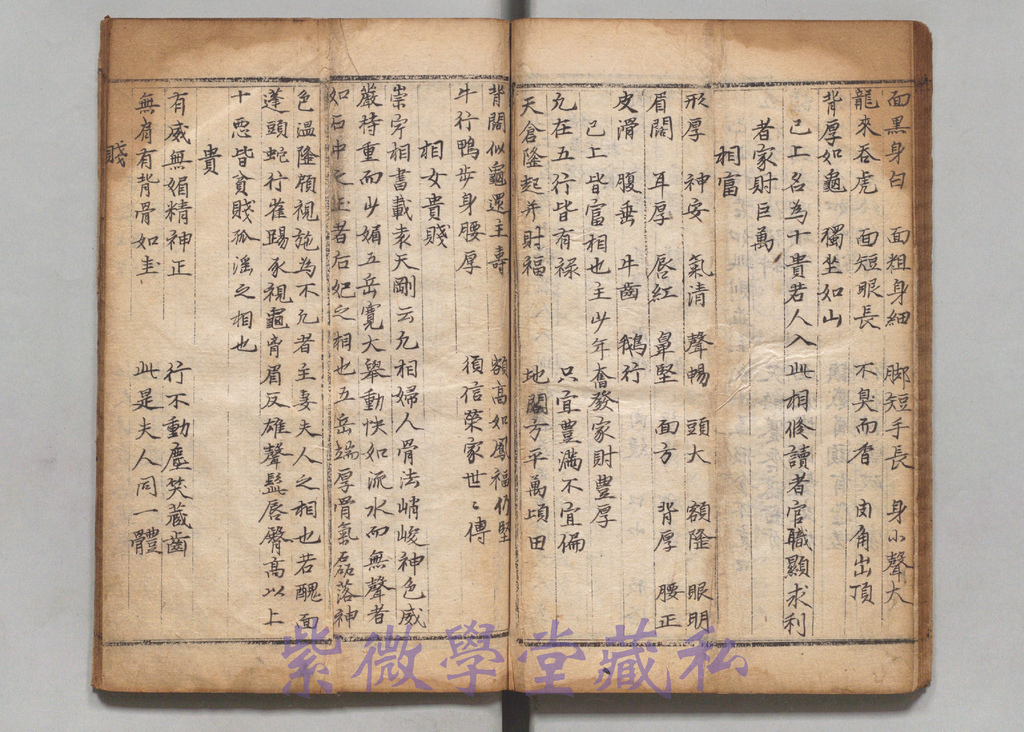 面黑身白 面粗身細 脚短手長 身小聲大
龍來吞虎 面短眼長 不臭而香 肉角出頂
背厚如龜 獨坐如山
已上名為十貴若人入此相修讀者官職顯求利
者家財巨萬
相富
形厚 神安 氣清 聲暢 頭大 額隆 眼明
眉闊 耳厚 唇紅 鼻堅 面方 背厚 腰正
皮滑 腹垂 牛齒 鵝行
已上皆富相也主少年奮發家財豊厚
允在五行皆有禄 只宜豊滿不宜偏
天倉隆起並財福 地閣方平萬頃田
背闊似龜還主壽 額高如鳳福仍堅
牛行鴨步身腰厚 須信榮家世〻傳
相女貴賤
崇字相書載袁天剛云允相婦人骨法峭峻神色威
嚴持重而少媚五岳寛大舉動快如流水而無聲者
如石中之玉者后妃之相也五岳端厚骨氣磊落神
色溫隆頋視施為不允者主妻夫人之相也若醜面
蓬頭蛇行雀踢豕視龜背眉反雄聲䰐唇臀高以上
十悪皆貧賤孤滛之相也
貴
有威無媚精神正 行不動塵笑藏齒
無肩有背骨如圭 此是夫人同一體
賤
紫微學堂藏私